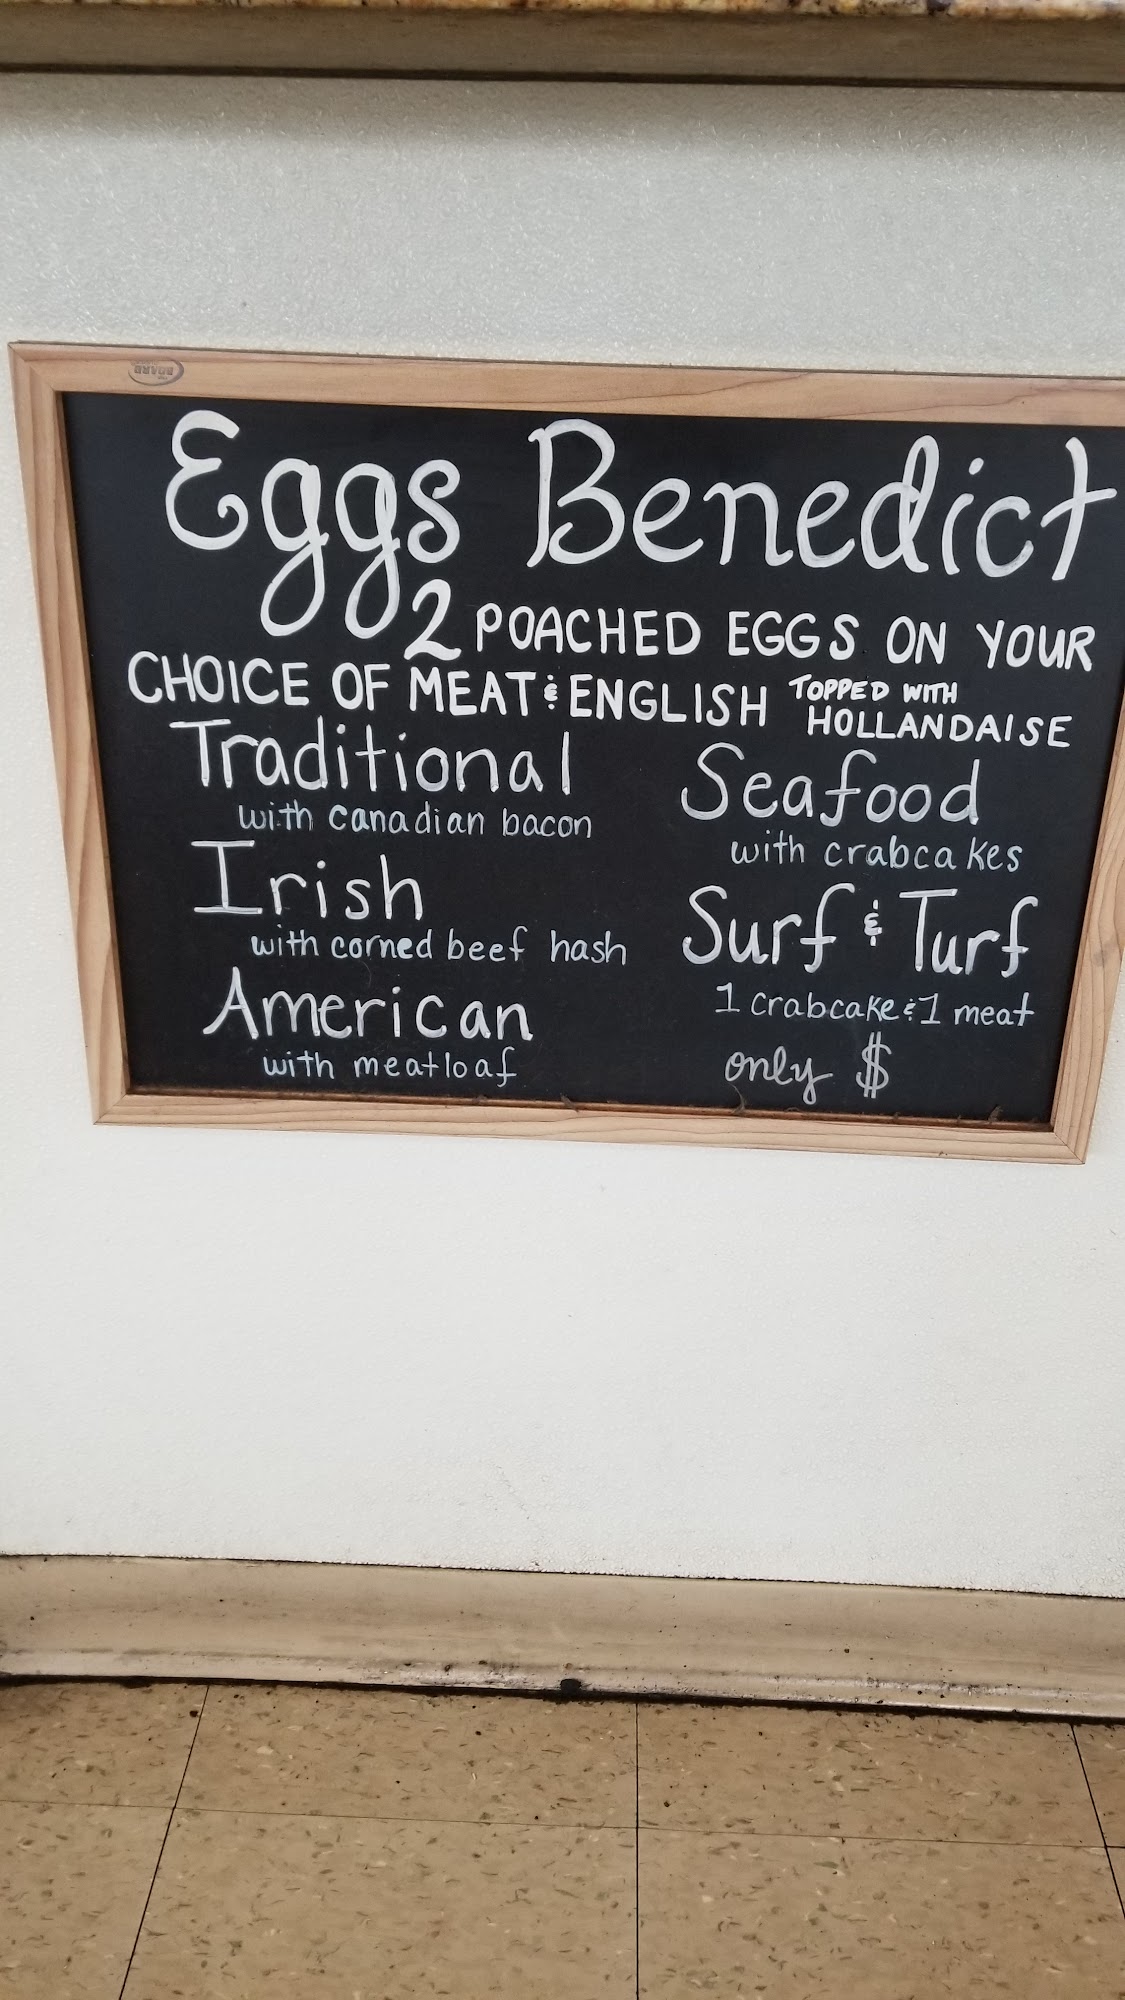 Eggs Benedict
2 POACHED EGGS ON YOUR
CHOICE OF MEAT & ENGLISH TOPPED WITH
HOLLANDAISE
Traditional
with canadian bacon
Irish
with corned beef hash
American
with meatloaf
Seafood
with crabcakes
Surf & Turf
1 crabcake & 1 meat
only $
BOARD